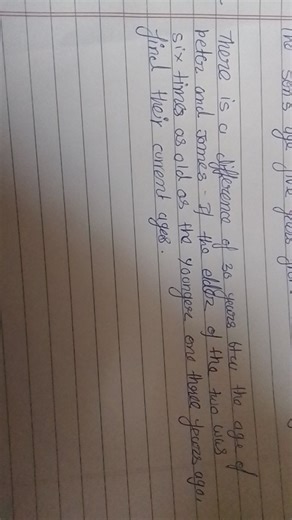 The son's age five years
There is a difference of 30 years btw the age of
peter and James - If the elder of the two was
six times as old as the youngere one three years ago,
find their current ages.